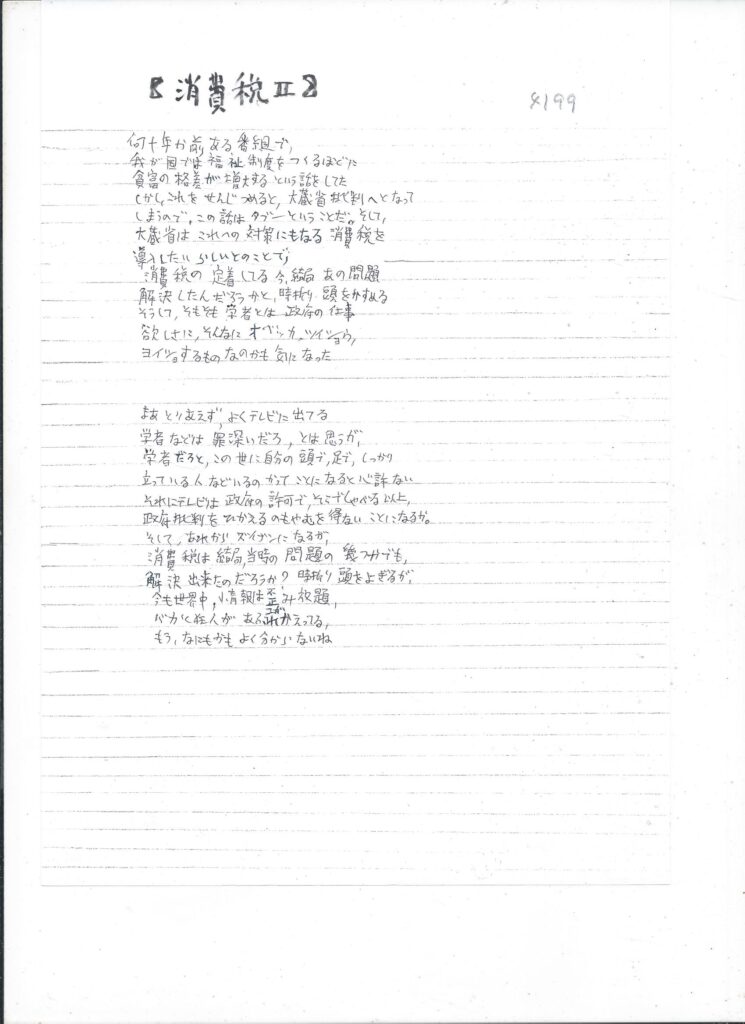 【消費税Ⅱ】
4199
何十年か前ある番組で、
我が国では福祉制度をつくるほどに
貧富の格差が増大するという話をしてた
しかし、これをせんじつめると、大蔵省批判へとなって
しまうので、この話はタブーということだ。そして、
大蔵省はこれへの対策にもなる消費税を
導入したいらしいとのことで、
消費税の定着してる今、結局あの問題
解決したんだろうかと、時折り頭をかすめる
そうして、そもそも学者とは政府の仕事
欲しさに、そんなにオベッカ、ツイショウ、
ヨイショするものなのかも気になった
まあとりあえず、よくテレビに出てる
学者などは罪深いだろ、とは思うが、
学者だろと、この世に自分の頭で、足で、しっかり
立っている人などいるのかってことになると心許ない
それにテレビは政府の許可で、そこでしゃべる以上、
政府批判をひかえるのもやむを得ないことになるか。
そして、あれからズイブンになるが、
消費税は結局、当時の問題の幾つかでも、
解決出来たのだろうか？時折り頭をよぎるが、
今も世界中、情報は歪み放題、
バカと狂人があふれかえってる、
もう、なにもかもよく分からないね